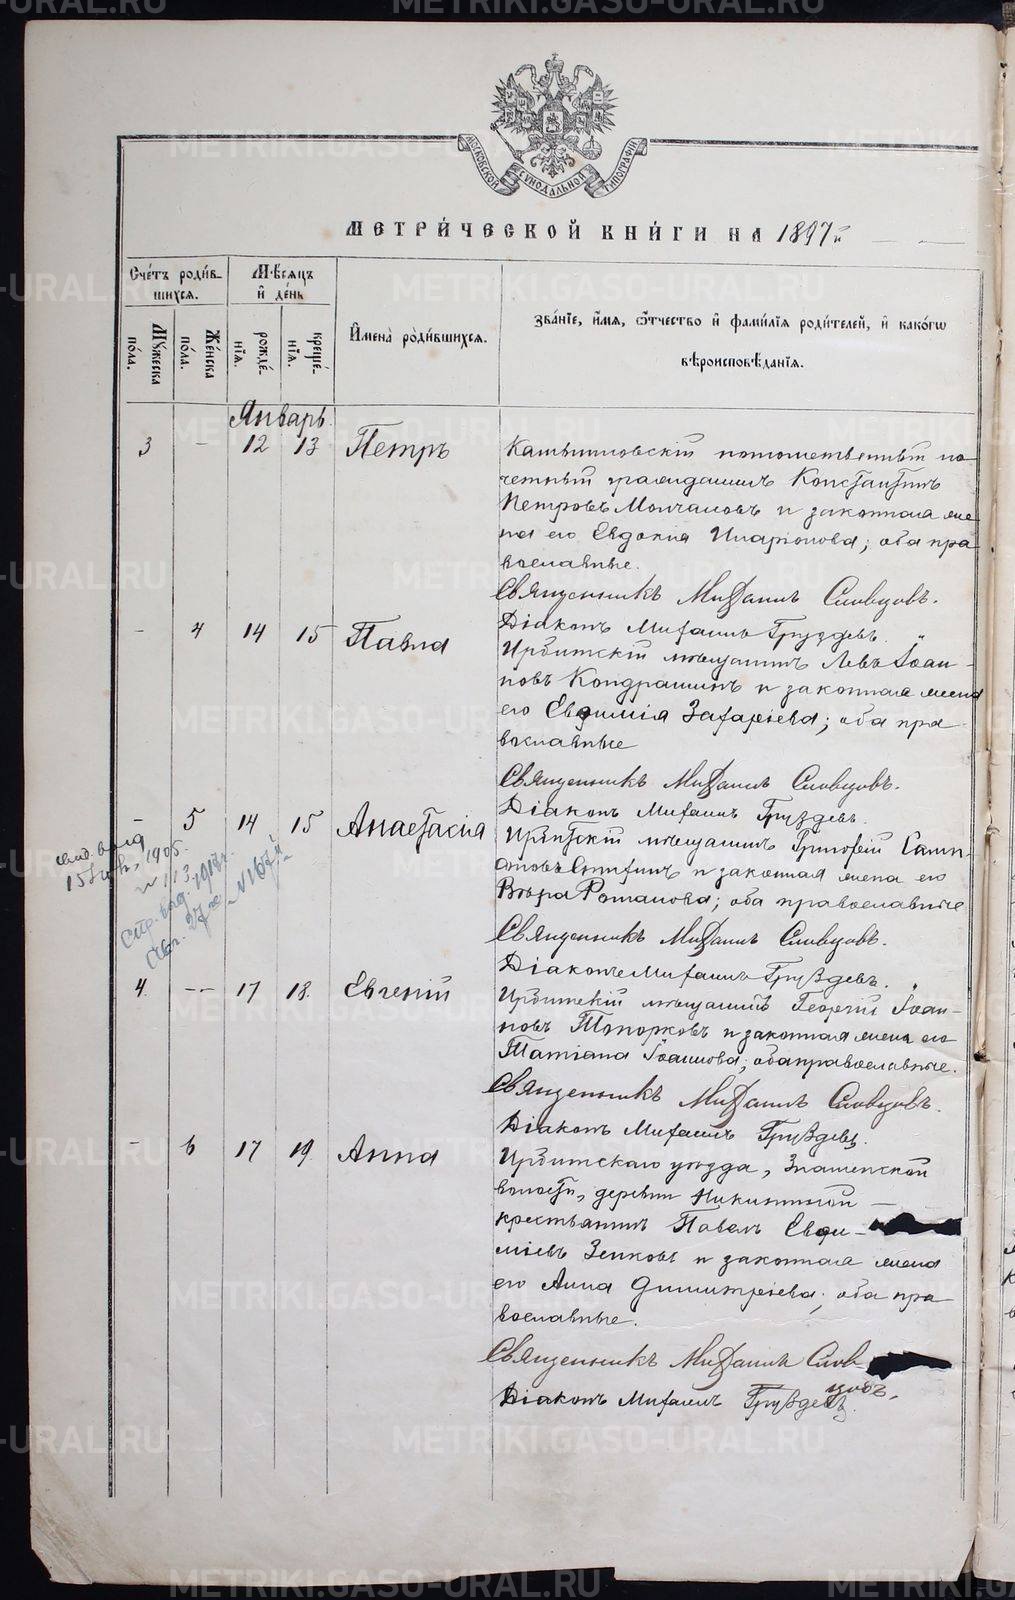 МОСКОВСКОЙ СѴНОДАЛЬНОЙ ТИПОГРАФІИ
МЕТРИ́ЧЕСКОЙ КНИ́ГИ НА 1897 й
Сче́тъ роди́в-
шихсѧ.
Мꙋжеска
по́ла.
Же́нска
по́ла.
М-ѣсѧцъ
и҆ де́нь
рожде́-
нїѧ.
креще́-
нїѧ.
И҆мена̀ роди́вшихсѧ.
Зва́нїе, и҆́мѧ, ѻ҆́тчество и҆ фами́лїѧ роди́телей, и҆ како́гѡ
вѣроисповѣ́данїѧ.
Январь.
3 - 12 13 Петръ
Камышловскій потомственный по
четный гражданинъ Константинъ
Петровъ Молчановъ и законная же
на его Евдокія Иларіонова; оба пра
вославные.
Священникъ Михаилъ Словцовъ.
Діаконъ Михаилъ Груздевъ.
- 4 14 15 Павла
Ирбитскій мѣщанинъ Левъ Іоан-
новъ Кондрашинъ и законная жена
его Евфимія Захаріева; оба пра-
вославные
Священникъ Михаилъ Словцовъ.
Діаконъ Михаилъ Груздевъ.
- 5 14 15 Анастасія
Ирбитскій мѣщанинъ Григорій
и законная жена его
Вѣра Романова; оба православные
Священникъ Михаилъ Словцовъ.
Діаконъ Михаилъ Груздевъ.
1905.
№ 113
1917г.
27
№ 167
4. -- 17 18. Евгеній
Ирбитскій мѣщанинъ Георгій Іоан-
новъ Топорковъ и законная жена его
Татіана Іоаннова; оба православные.
Священникъ Михаилъ Словцовъ.
Діаконъ Михаилъ Груздевъ.
- 6 17 19. Анна
Ирбитскаго уѣзда, Знаменской
волости, деревни Никитиной
крестьянинъ Павелъ Евфи-
міевъ Зенковъ и законная жена
его Анна Димитріева; оба пра-
вославные.
Священникъ Михаилъ Слов
цовъ.
Діаконъ Михаилъ Груздевъ.
METRIKI.GASO-URAL.RU